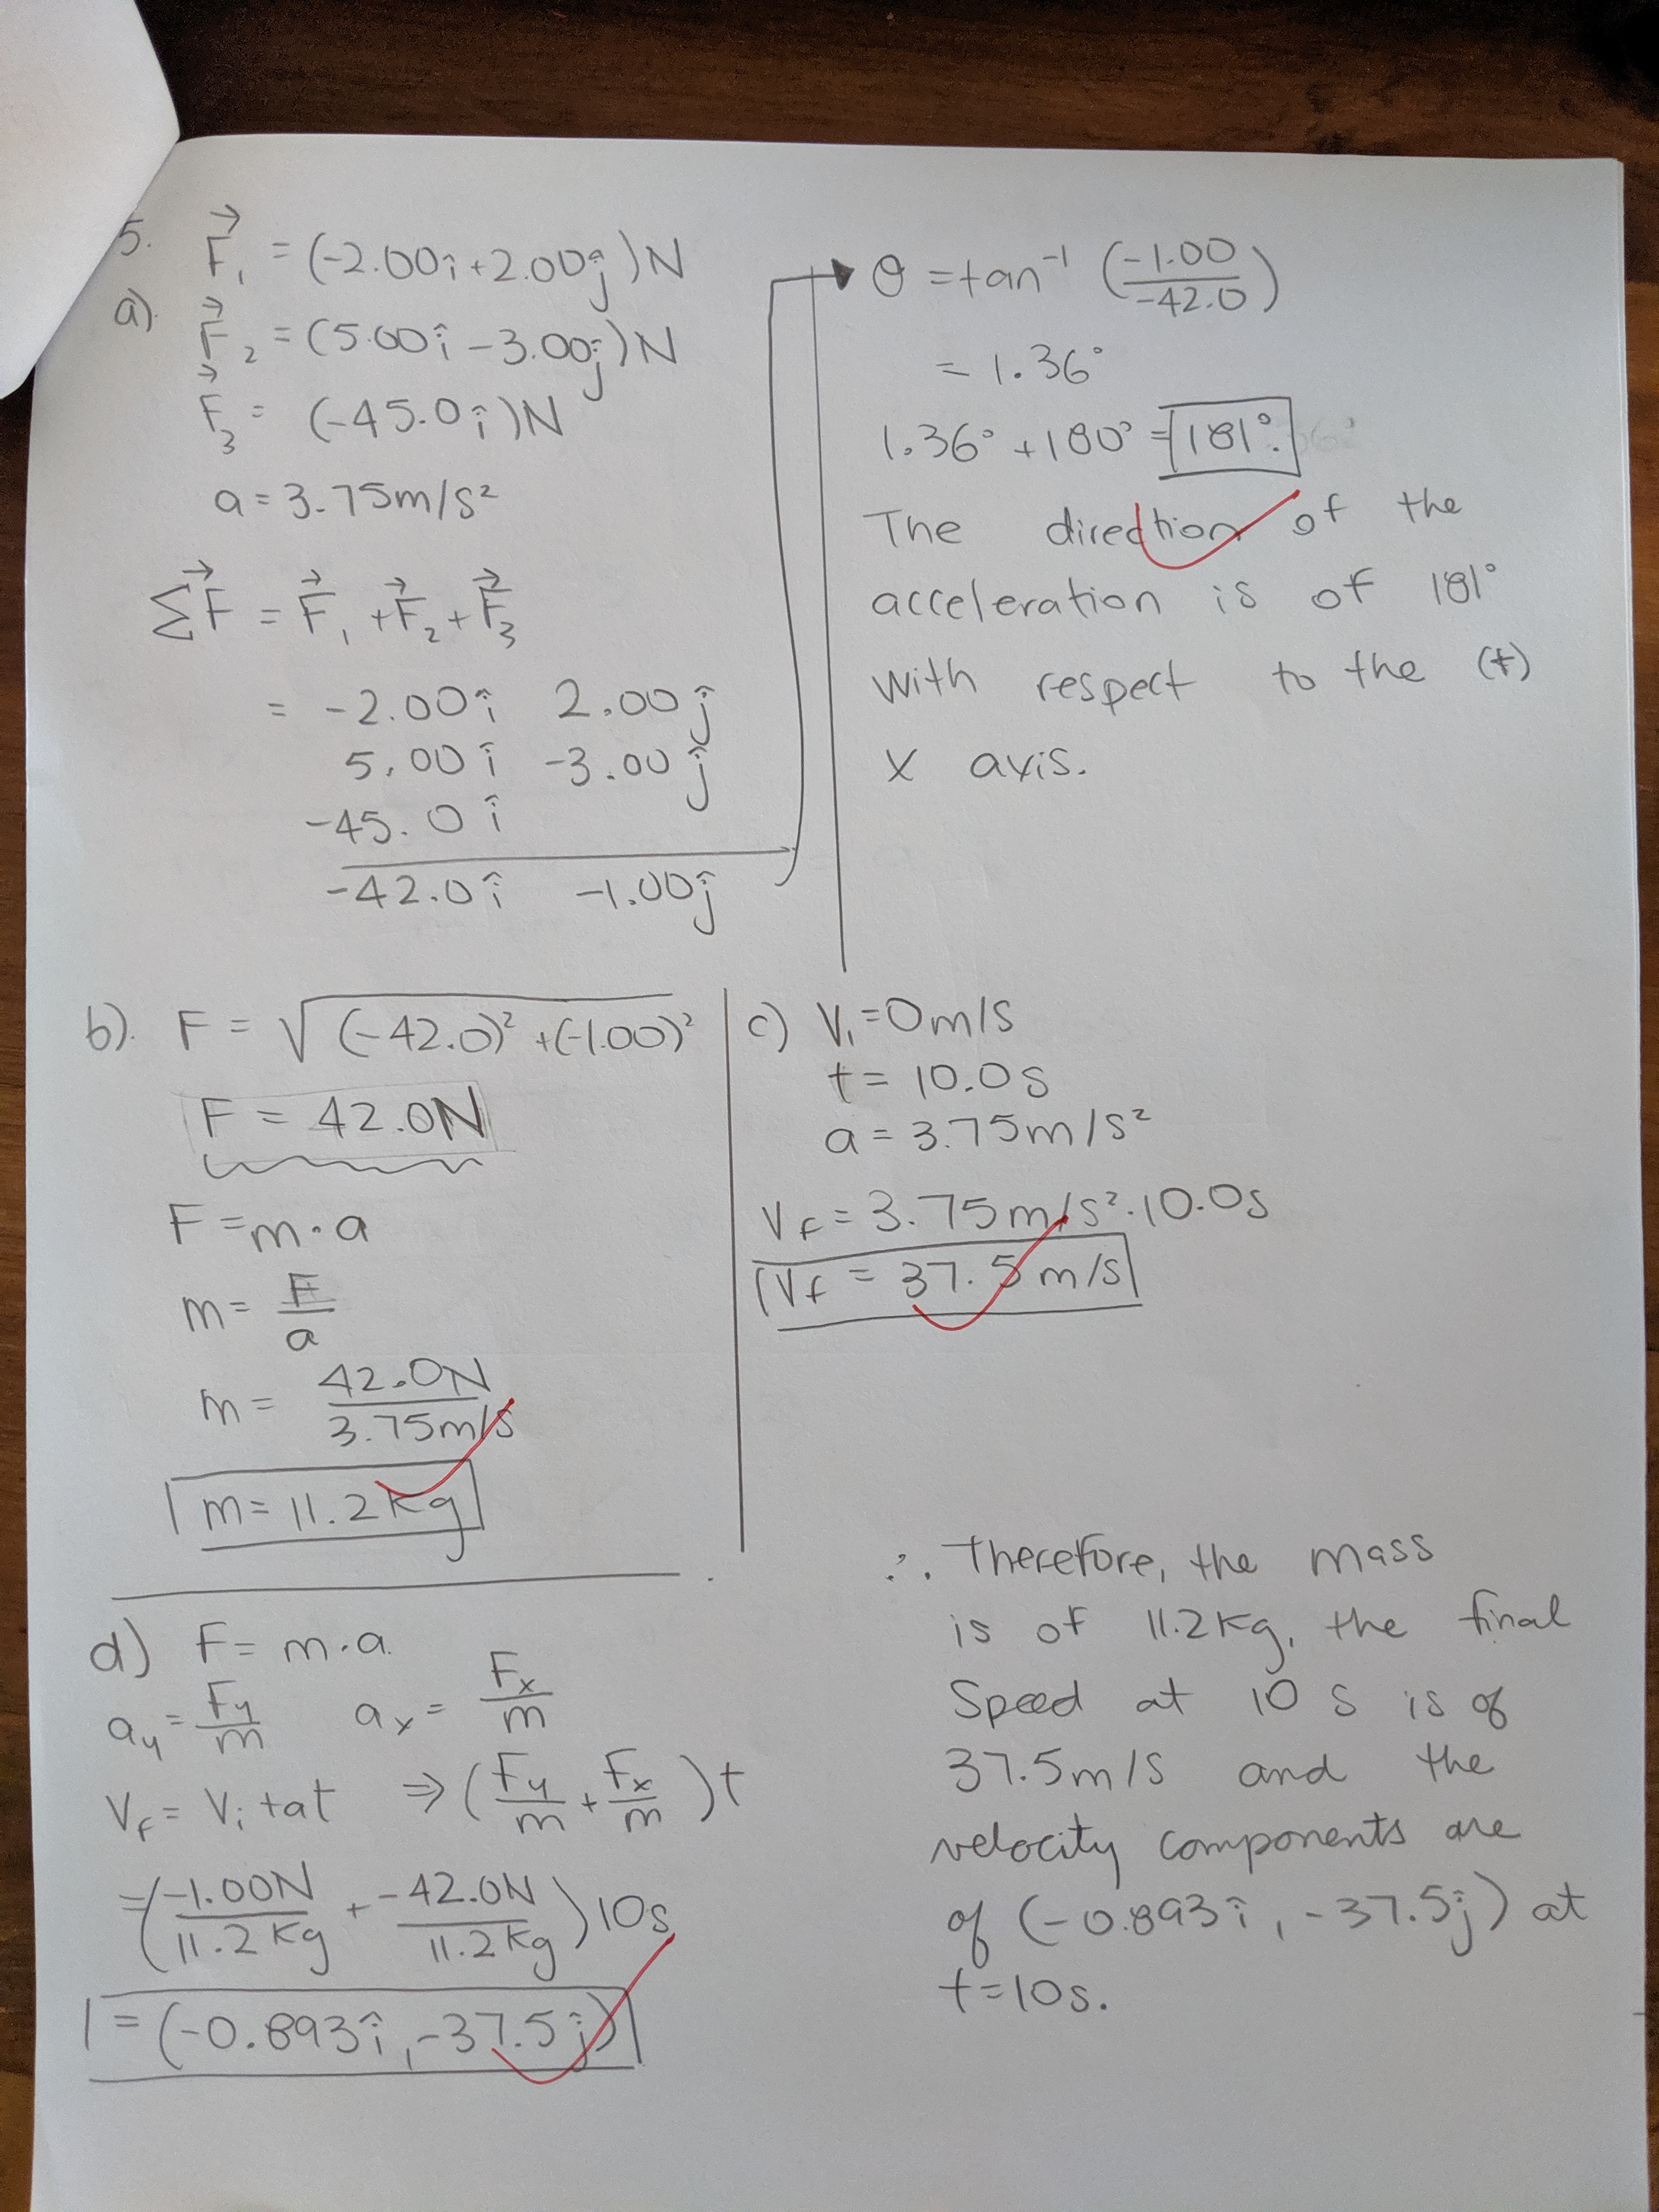 5.
a).
F⃗₁ = (-2.00î+2.00ĵ)N
F⃗₂ = (5.00î-3.00ĵ)N
F⃗₃ = (-45.0î)N
a = 3.75m/s²
ΣF⃗ = F⃗₁ + F⃗₂ + F⃗₃
= -2.00î 2.00ĵ
5.00î -3.00ĵ
-45.0î
-42.0î -1.00ĵ
θ = tan⁻¹ (-1.00/-42.0)
= 1.36°
1.36° + 180° = 181°.
The direction of the
acceleration is of 181°
with respect to the (+)
x axis.
b). F = √(-42.0)² + (-1.00)²
F = 42.0N
F = m·a
m = F/a
m = 42.0N/3.75m/s
m = 11.2kg
c) Vᵢ = 0m/s
t = 10.0s
a = 3.75m/s²
Vf = 3.75m/s²·10.0s
Vf = 37.5m/s
d) F = m·a
ay = Fy/m ax = Fx/m
Vf = Vi + at ⇒ (Fy/m + Fx/m)t
= (-1.00N/11.2kg + -42.0N/11.2kg)10s
= (-0.893î, -37.5ĵ)
∴ Therefore, the mass
is of 11.2kg, the final
Speed at 10 s is of
37.5m/s and the
velocity components are
of (-0.893î, -37.5ĵ) at
t=10s.